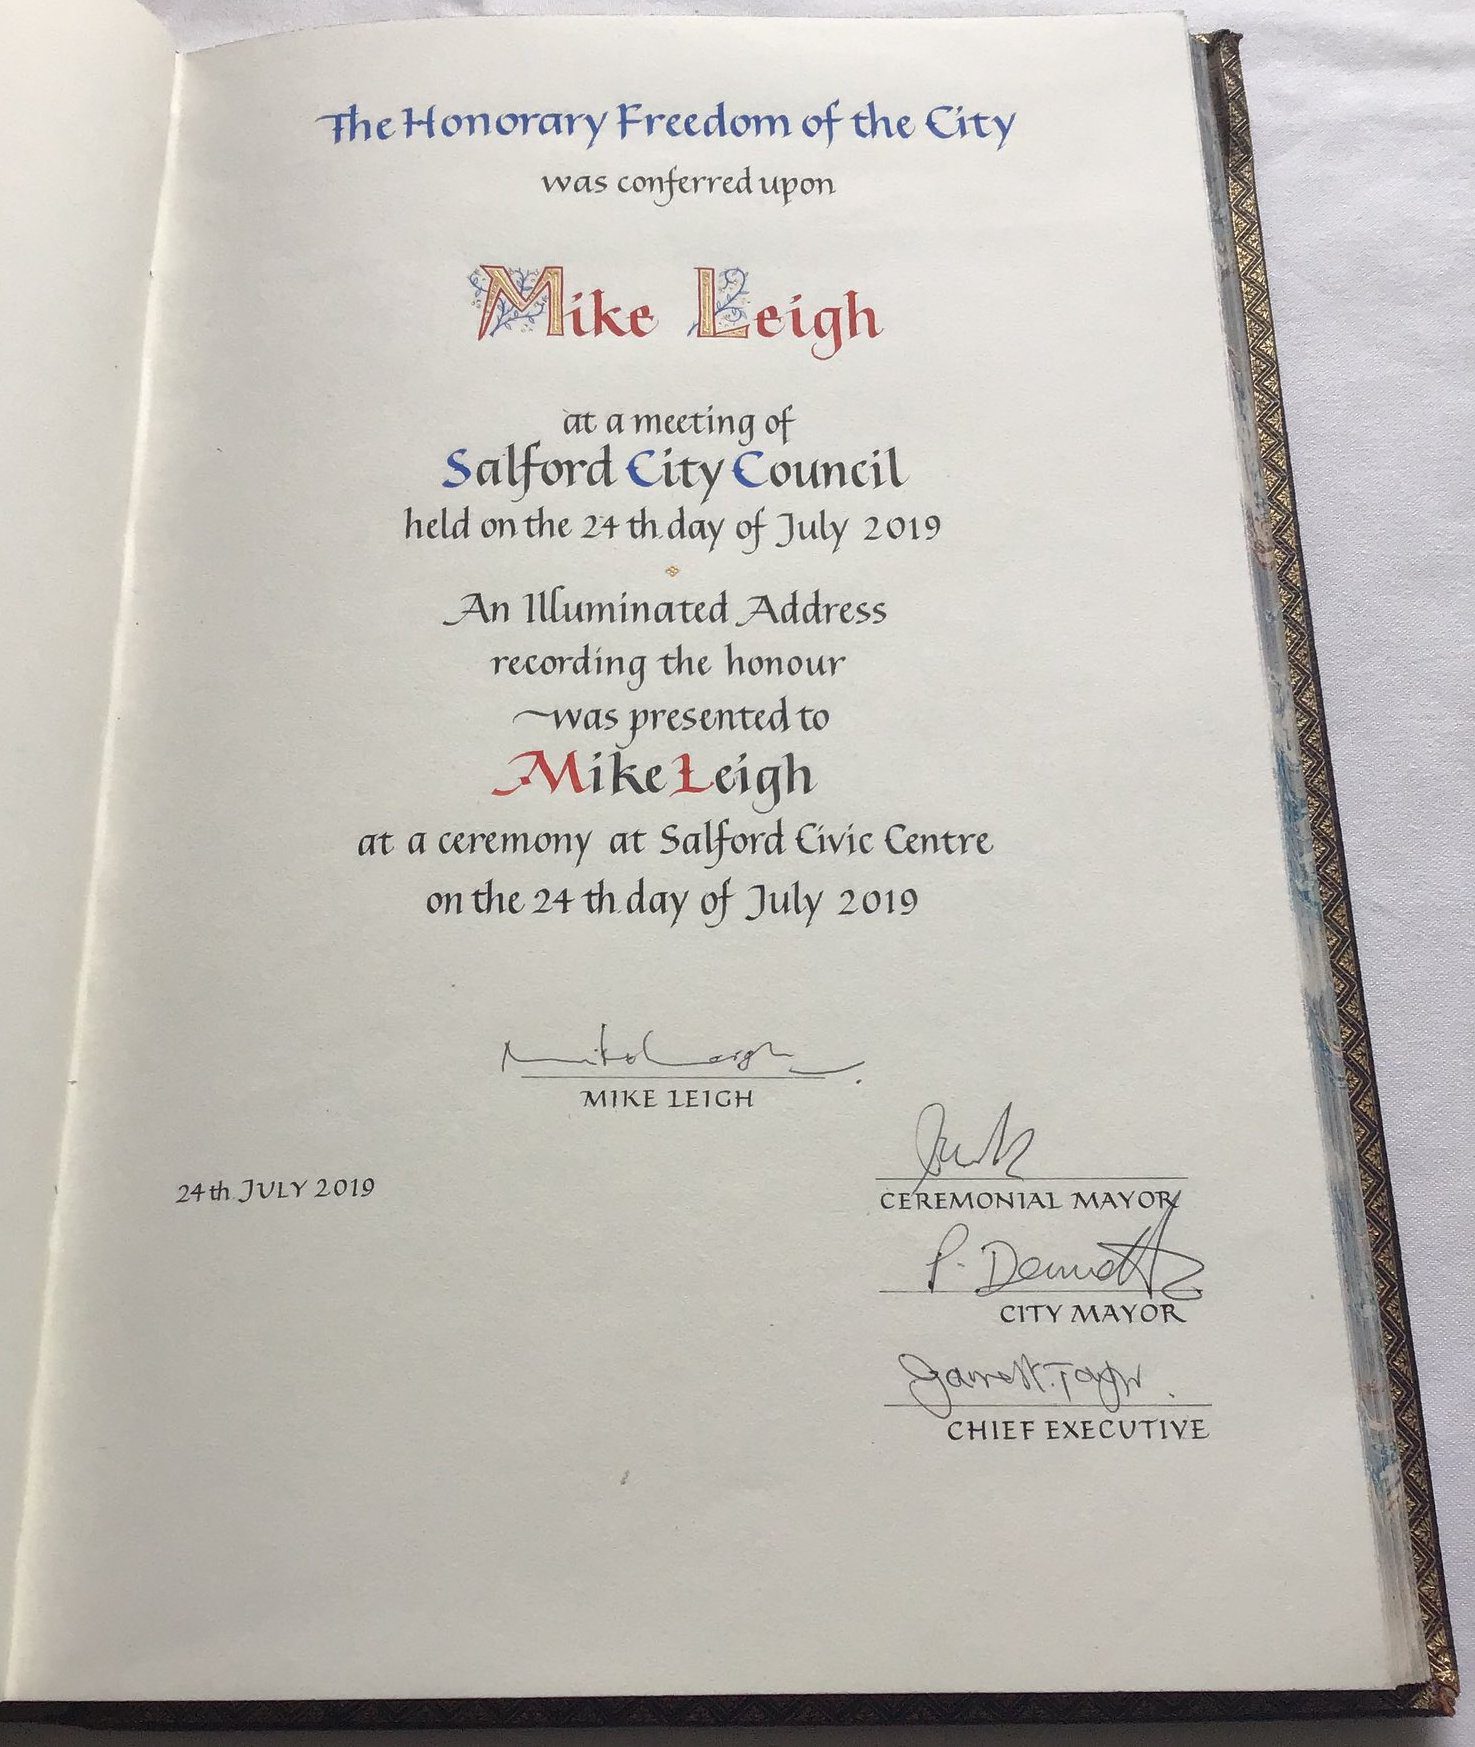 The Honorary Freedom of the City
was conferred upon
Mike Leigh
at a meeting of
Salford City Council
held on the 24th day of July 2019
An Illuminated Address
recording the honour
was presented to
Mike Leigh
at a ceremony at Salford Civic Centre
on the 24th day of July 2019
Mike Leigh
MIKE LEIGH
24th JULY 2019
CEREMONIAL MAYOR
P. Dennett
CITY MAYOR
CHIEF EXECUTIVE